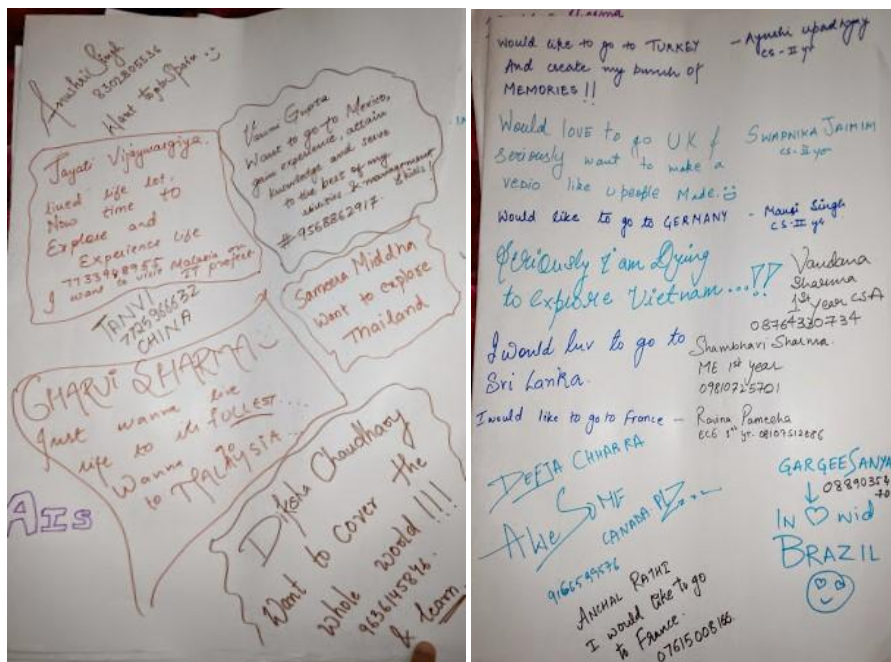 Singh
8302805536
Want to
Jayati Vijayvargiya.
lived life lot,
Now time to
Explore and
Experience life
I want to visit Malasia on
IT project.
Vauni Gupta
Want to go to Mexico,
gain experience, attain
knowledge and serve
to the best of my
& management
skills!
# 9568862917.
Sameera Middha
Want to explore
Thailand
TANVI
7725966632
CHINA
GHARVI SHARMA
Just wanna live
life to its FULLEST....
Wanna go
to MALAYSIA...
AIS
Diksha Chaudhary
Want to cover the
whole world !!!
9636145846.
& learn
Would like to go to TURKEY - Ayushi Upadhyay
And create my bunch of CS-II yr
MEMORIES !!
Would LOVE to go UK & SWAPNIKA JAIMIM
seriously want to make a CS-II yr
vedio like u people Made.
Would like to go to GERMANY - Mansi Singh
CS-II yr
Seriously I am Dying
to explore Vietnam...!!
Vandana
Sharma
1st Year CSA
08764330734
I would luv to go to
Sri Lanka.
Shambhavi Sharma.
ME 1st year
09810725701
I would like to go to France - Ravina Pameeha
ECE 1st yr. 08107512686
DEEJA CHHABRA
AWESOME
CANADA PLZ....
9166599576
ANCHAL RATHI
I would like to go
to France.
07615008166
GARGEE SANYA
08890354
70
IN ♡ wid
BRAZIL